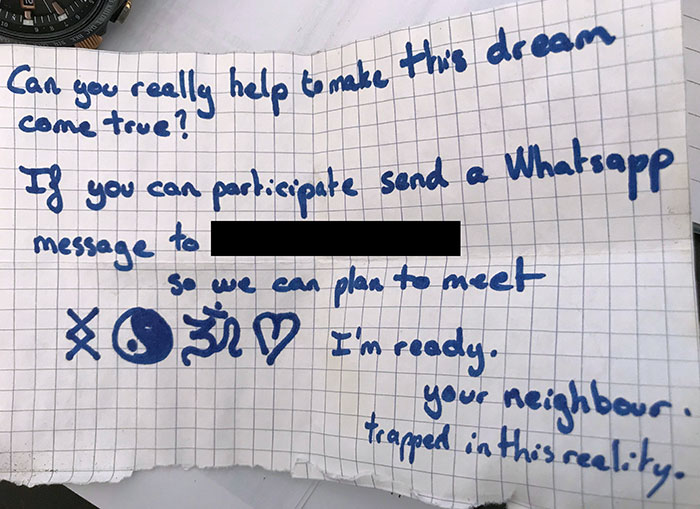 Can you really help to make this dream
come true?
If you can participate send a Whatsapp
message to
so we can plan to meet
I'm ready.
your neighbour.
trapped in this reality.